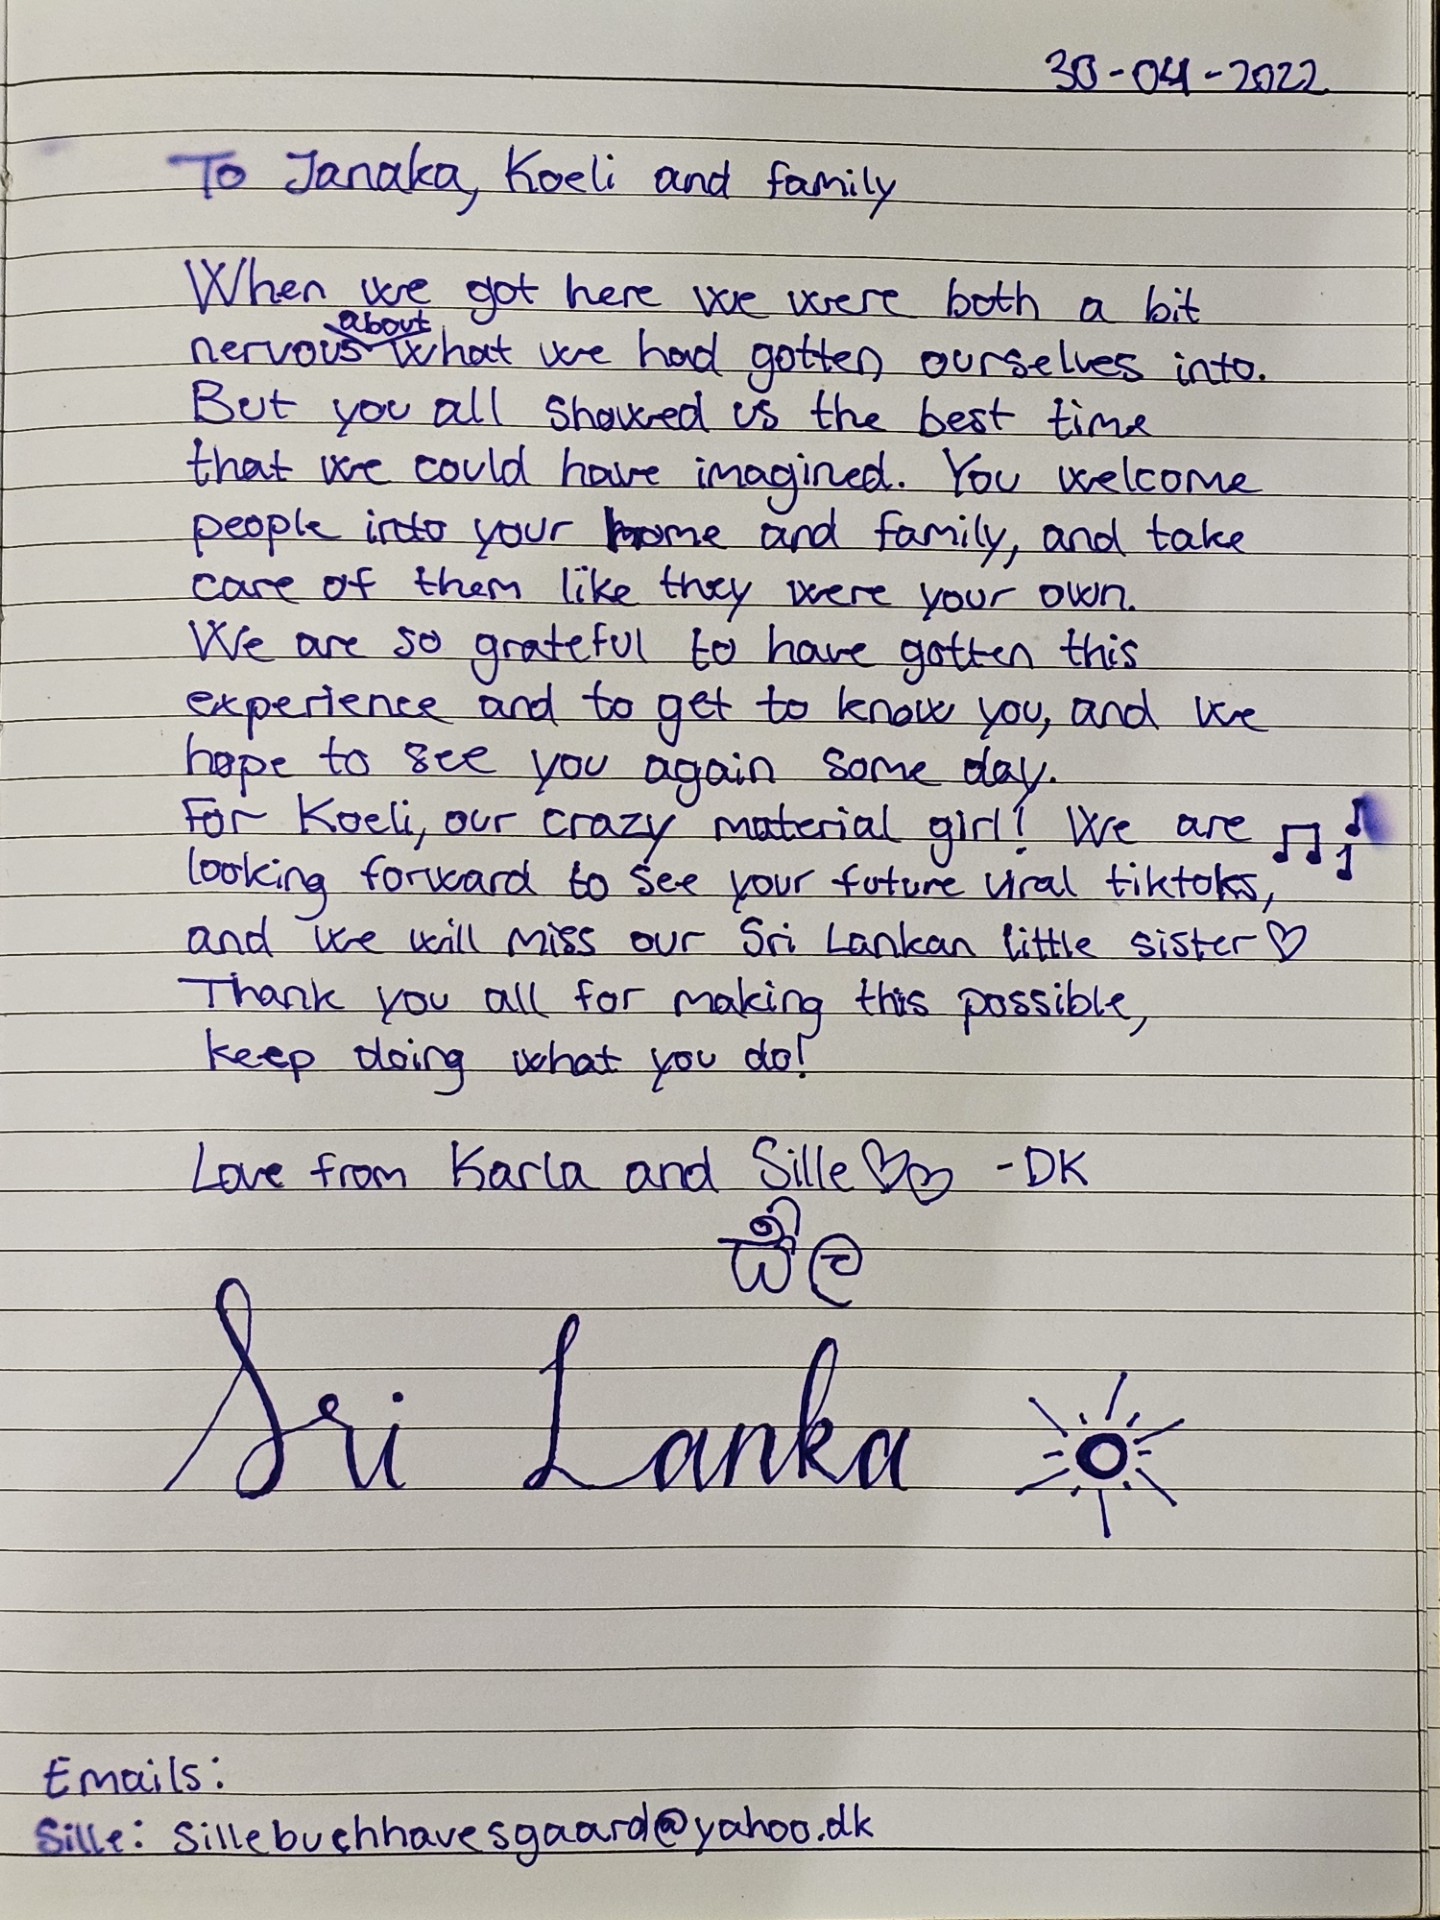 30-04-2022
To Janaka, Koeli and family
When we got here we were both a bit
nervous about what we had gotten ourselves into.
But you all showed us the best time
that we could have imagined. You welcome
people into your home and family, and take
care of them like they were your own.
We are so grateful to have gotten this
experience and to get to know you, and we
hope to see you again some day.
For Koeli, our crazy material girl! We are
looking forward to see your future viral tiktoks,
and we will miss our Sri Lankan little sister ♡
Thank you all for making this possible,
keep doing what you do!
Love from Karla and Sille ♡♡ -DK
සීල
Sri Lanka
Emails:
Sille: sillebuchhavesgaard@yahoo.dk